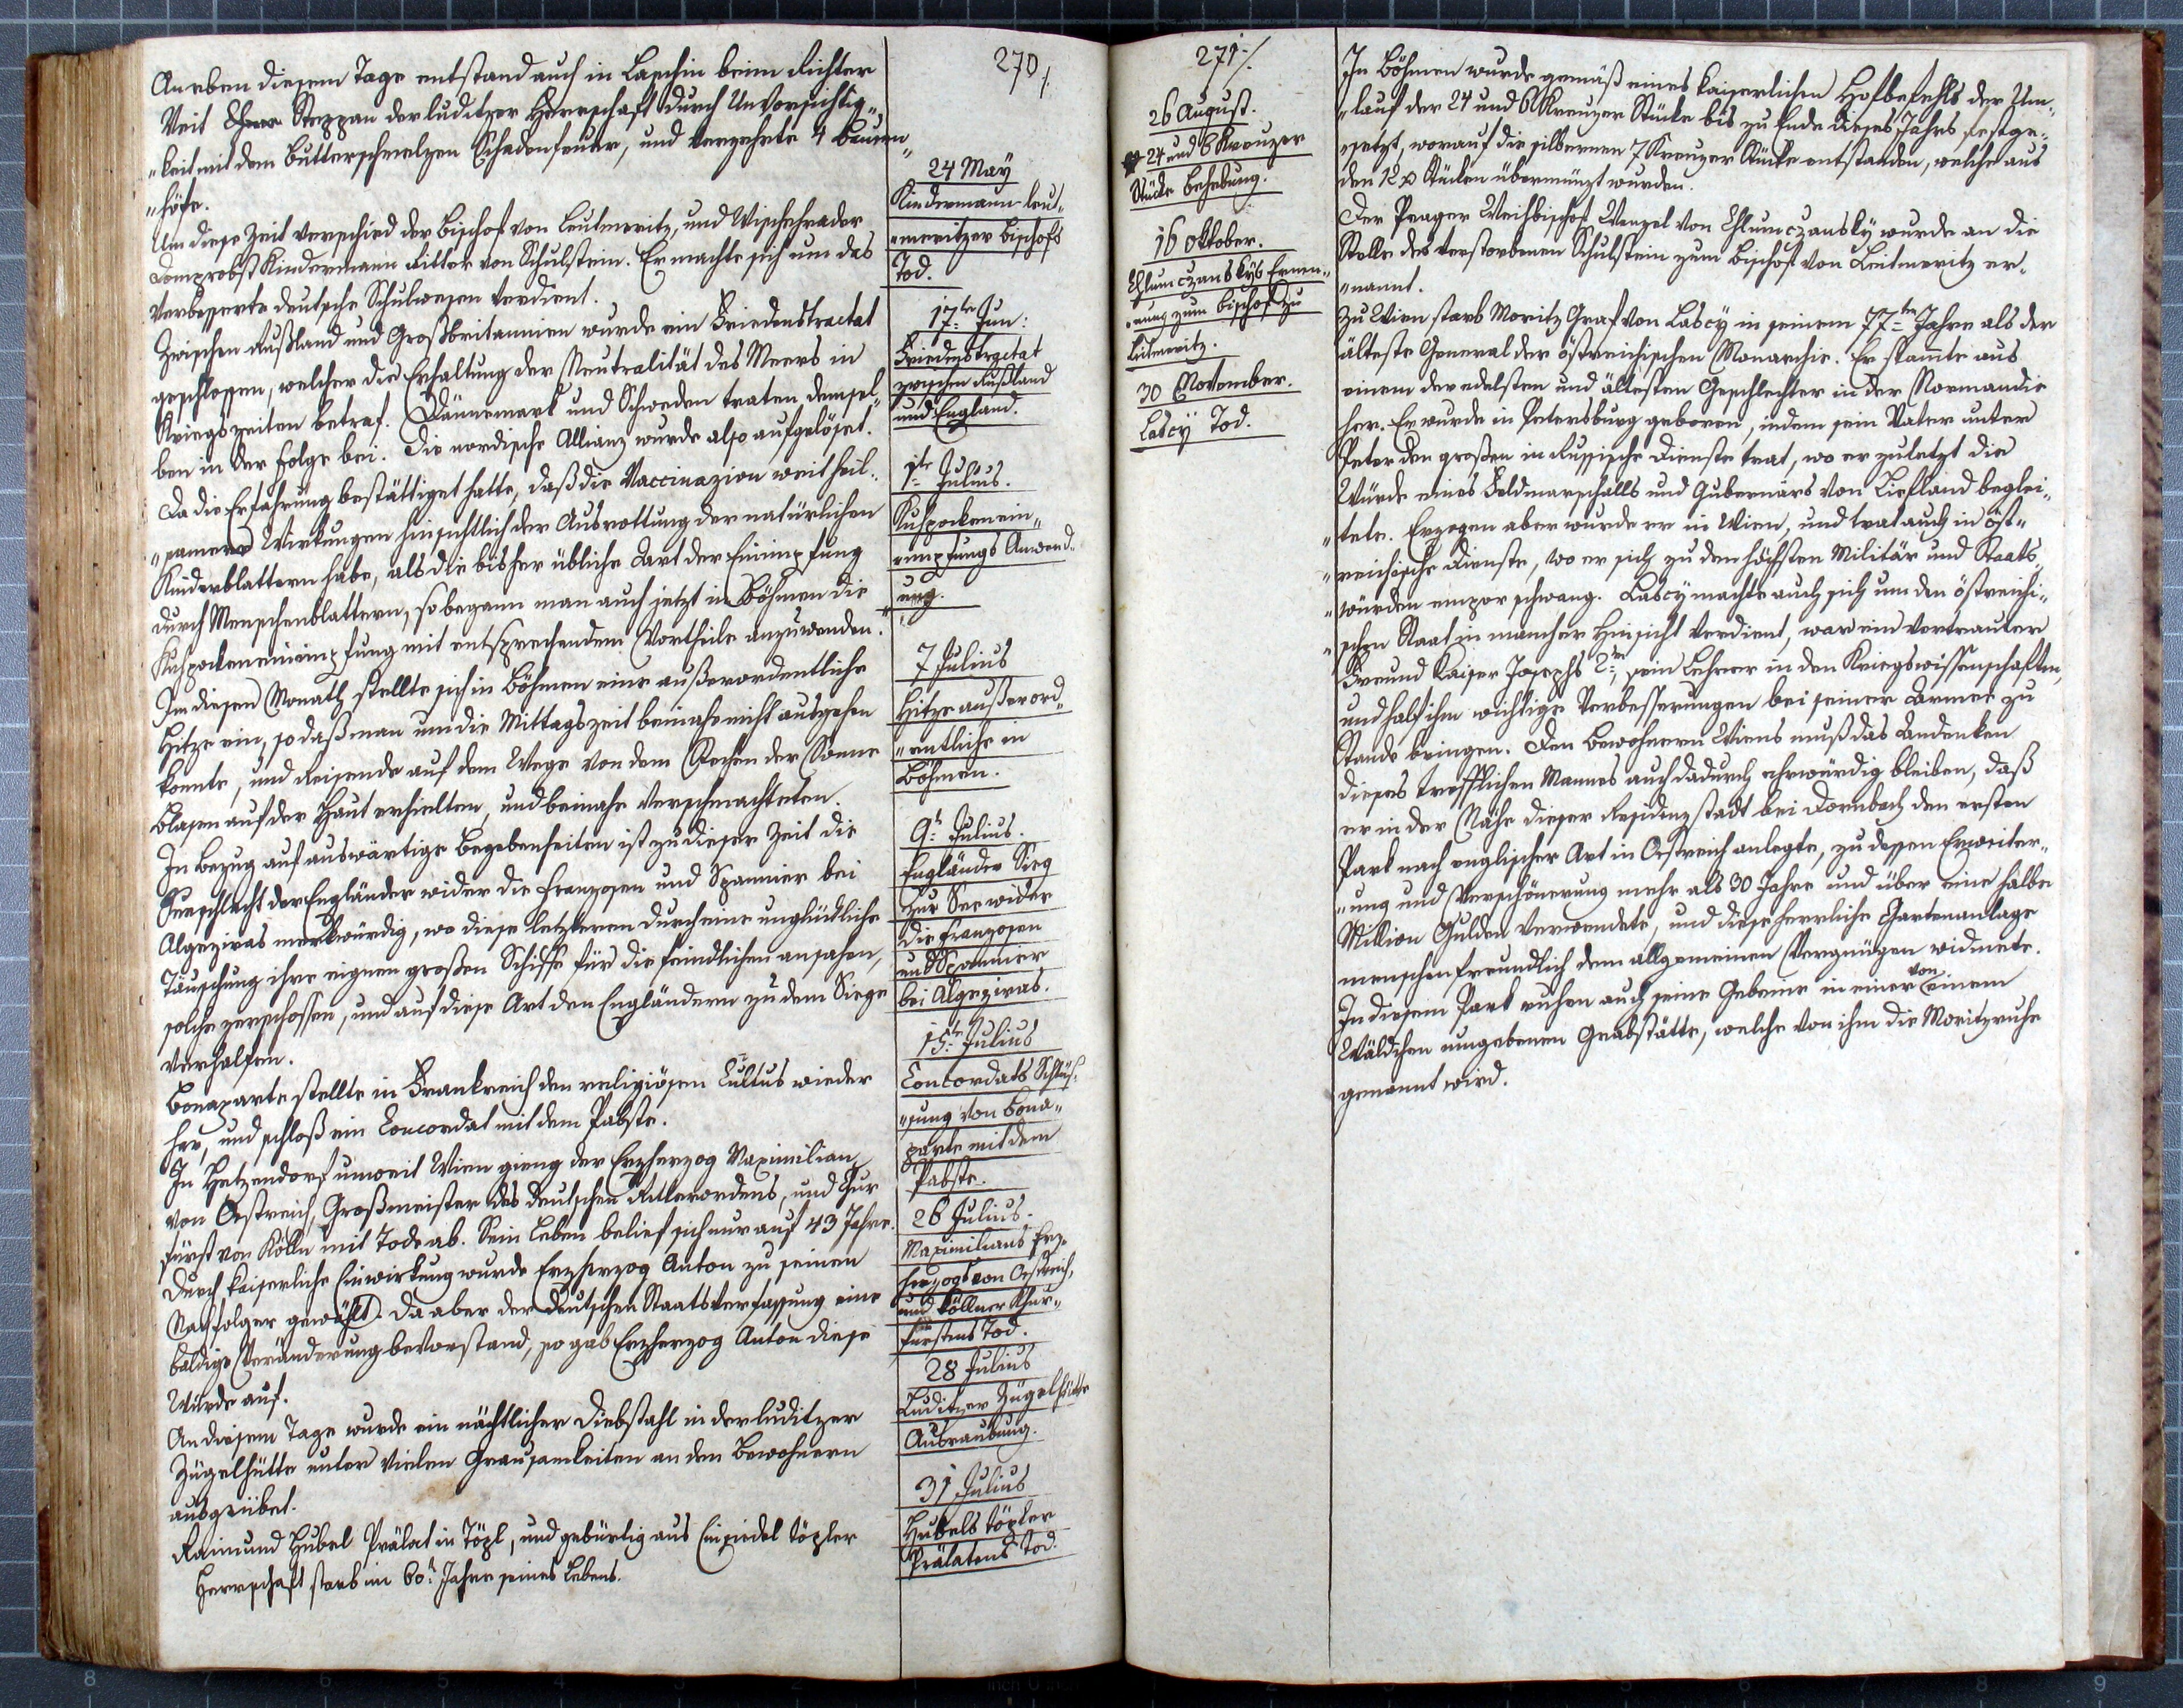 270/.
An eben diesem Tage entstand auch in Laschin beim Richter
Veit Steppan der luditzer Herrschaft durch Unvorsichtig„
„keit mit dem Butterschmelzen Schadenfeuer, und verzehrte 4 Bauern„
„höfe.
24 May
Kindermann leut„
„meritzer Bischofs
Tod.
Um diese Zeit verschied der Bischof von Leutmeritz, und Wischehrader
Domprobst Kindermann Ritter von Schulstein. Er machte sich um das
verbesserte deutsche Schulwesen verdient.
17te Jun:
Friedenstractat
zwischen Rußland
und England.
Zwischen Rußland und Großbritannien wurde ein Friedenstractat
geschlossen, welcher die Erhaltung der Neutralität des Meers in
Kriegszeiten betraf. Dännemark und Schweden traten demsel„
ben in der Folge bei. Die nordische Allianz wurde also aufgelöset.
1te Julius.
Kuhpockenein„
„impfungs Anwend„
ung.
Da die Erfahrung bestättiget hatte, daß die Vaccinazion weit heil„
„samere Wirkungen hinsichtlich der Ausrottung der natürlichen
Kinderblattern habe, als die bisher übliche Art der Einimpfung
durch Menschenblattern, so begann man auch jetzt in Böhmen die
Kuhpockeneinimpfung mit entsprechendem Vortheile anzuwenden.
7 Julius
Hitze außerord„
„entliche in
Böhmen.
In diesen Monath stellte sich in Böhmen eine außerordentliche
Hitze ein, so daß man um die Mittagszeit beinahe nicht ausgehen
konnte, und Reisende auf dem Wege von dem Stechen der Sonne
Blasen auf der Haut erhielten, und beinahe verschmachteten.
9te Julius.
Engländer Sieg
zur See wider
die Franzosen
und Spannier
bei Algeziras.
In Bezug auf auswärtige Begebenheiten ist zu dieser Zeit die
Seeschlacht der Engländer wider die Franzosen und Spannier bei
Algeziras merkwürdig, wo diese letzteren durch eine unglückliche
Täuschung ihre eignen großen Schiffe für die feindlichen ansahen,
solche zerschossen, und auf diese Art den Engländern zu dem Siege
verhalfen.
15te Julius
Concordats Schlüs„
„sung von Bona„
parte mit dem
Pabste.
Bonaparte stellte in Frankreich den religiösen Cultus wieder
her, und schloß ein Concordat mit dem Pabste.
26 Julius.
Maximilians Erz„
herzogs von Oestreich,
und Köllner Chur„
fürstens Tod.
In Hetzendorf unweit Wien gieng der Erzherzog Maximilian
von Oestreich, Großmeister des deutschen Ritterordens, und Chur
fürst von Kölln mit Tode ab. Sein Leben belief sich nur auf 43 Jahre.
Durch kaiserliche Einwirkung wurde Erzherzog Anton zu seinen
Nachfolger gewählt. Da aber der deutschen Staatsverfassung eine
baldige Veränderung bevorstand, so gab Erzherzog Anton diese
Würde auf.
28 Julius
Luditzer Zügelhütte
Ausraubung.
An diesem Tage wurde ein nächtlicher Diebstahl in der luditzer
Zügelhütte unter vielen Grausamkeiten an den Bewohnern
ausgeübet.
31 Julius
Hubels töpler
Prälatens Tod.
Raimund Hubel Prälat in Töpl, und gebürtig aus Einsiedel töpler
Herrschaft starb im 60t Jahre seines Lebens.
271/.
26 August.
24 und 6 Kreuzer
Stücke Behebung.
In Böhmen wurde gemäß eines kaiserlichen Hofbefehls der Um„
„lauf der 24 und 6 Kreuzer Stücke bis zu Ende dieses Jahrs festge„
„setzt, worauf die silbernen 7 Kreuzer Stücke entstanden, welche aus
den 12 x Stücken übermünzt wurden.
16 Oktober.
Chlumczanskys Ernen„
„nung zum Bischof zu
Leitmeritz.
Der Prager Weihbischof Wenzel von Chlumczansky wurde an die
Stelle des verstorbenen Schulstein zum Bischof von Leitmeritz er„
„nannt.
30 November.
Lascy Tod.
Zu Wien starb Moritz Graf von Lascy in seinem 77ten Jahre als der
älteste General der östreichischen Monarchie. Er stamte aus
einem der edelsten und ältesten Geschlechter in der Normandie
her. Er wurde in Petersburg geboren, indem sein Vater unter
Peter den großen in Russische Dienste trat, wo er zuletzt die
Würde eines Feldmarschalls und Gubernärs von Liefland beglei„
„tete. Erzogen aber wurde er in Wien, und trat auch in öst„
„reichische Dienste, wo er sich zu den höchsten Militär und Staats„
„würden empor schwang. Lascy machte auch sich um den östreichi„
„schen Staat in mancher Hinsicht verdient, war ein vertrauter
Freund Kaiser Josephs 2ten, sein Lehrer in den Kriegswissenschaften,
und half ihm wichtige Verbesserungen bei seiner Armee zu
Stande bringen. Den Bewohnern Wiens muß das Andenken
dieses trefflichen Mannes auch dadurch ehrwürdig bleiben, daß
er in der Nähe dieser Residenzstadt bei Dornbach den ersten
Park nach englischer Art in Oestreich anlegte, zu dessen Erweiter„
„ung und Verschönerung mehr als 30 Jahre und über eine halbe
Million Gulden verwendete, und diese herrliche Gartenanlage
menschenfreundlich dem allgemeinen Vergnügen widmete.
In diesem Park ruhen auch seine Gebeine in einer von einem
Wäldchen umgebenen Grabstätte, welche von ihm die Moritzruhe
genannt wird.